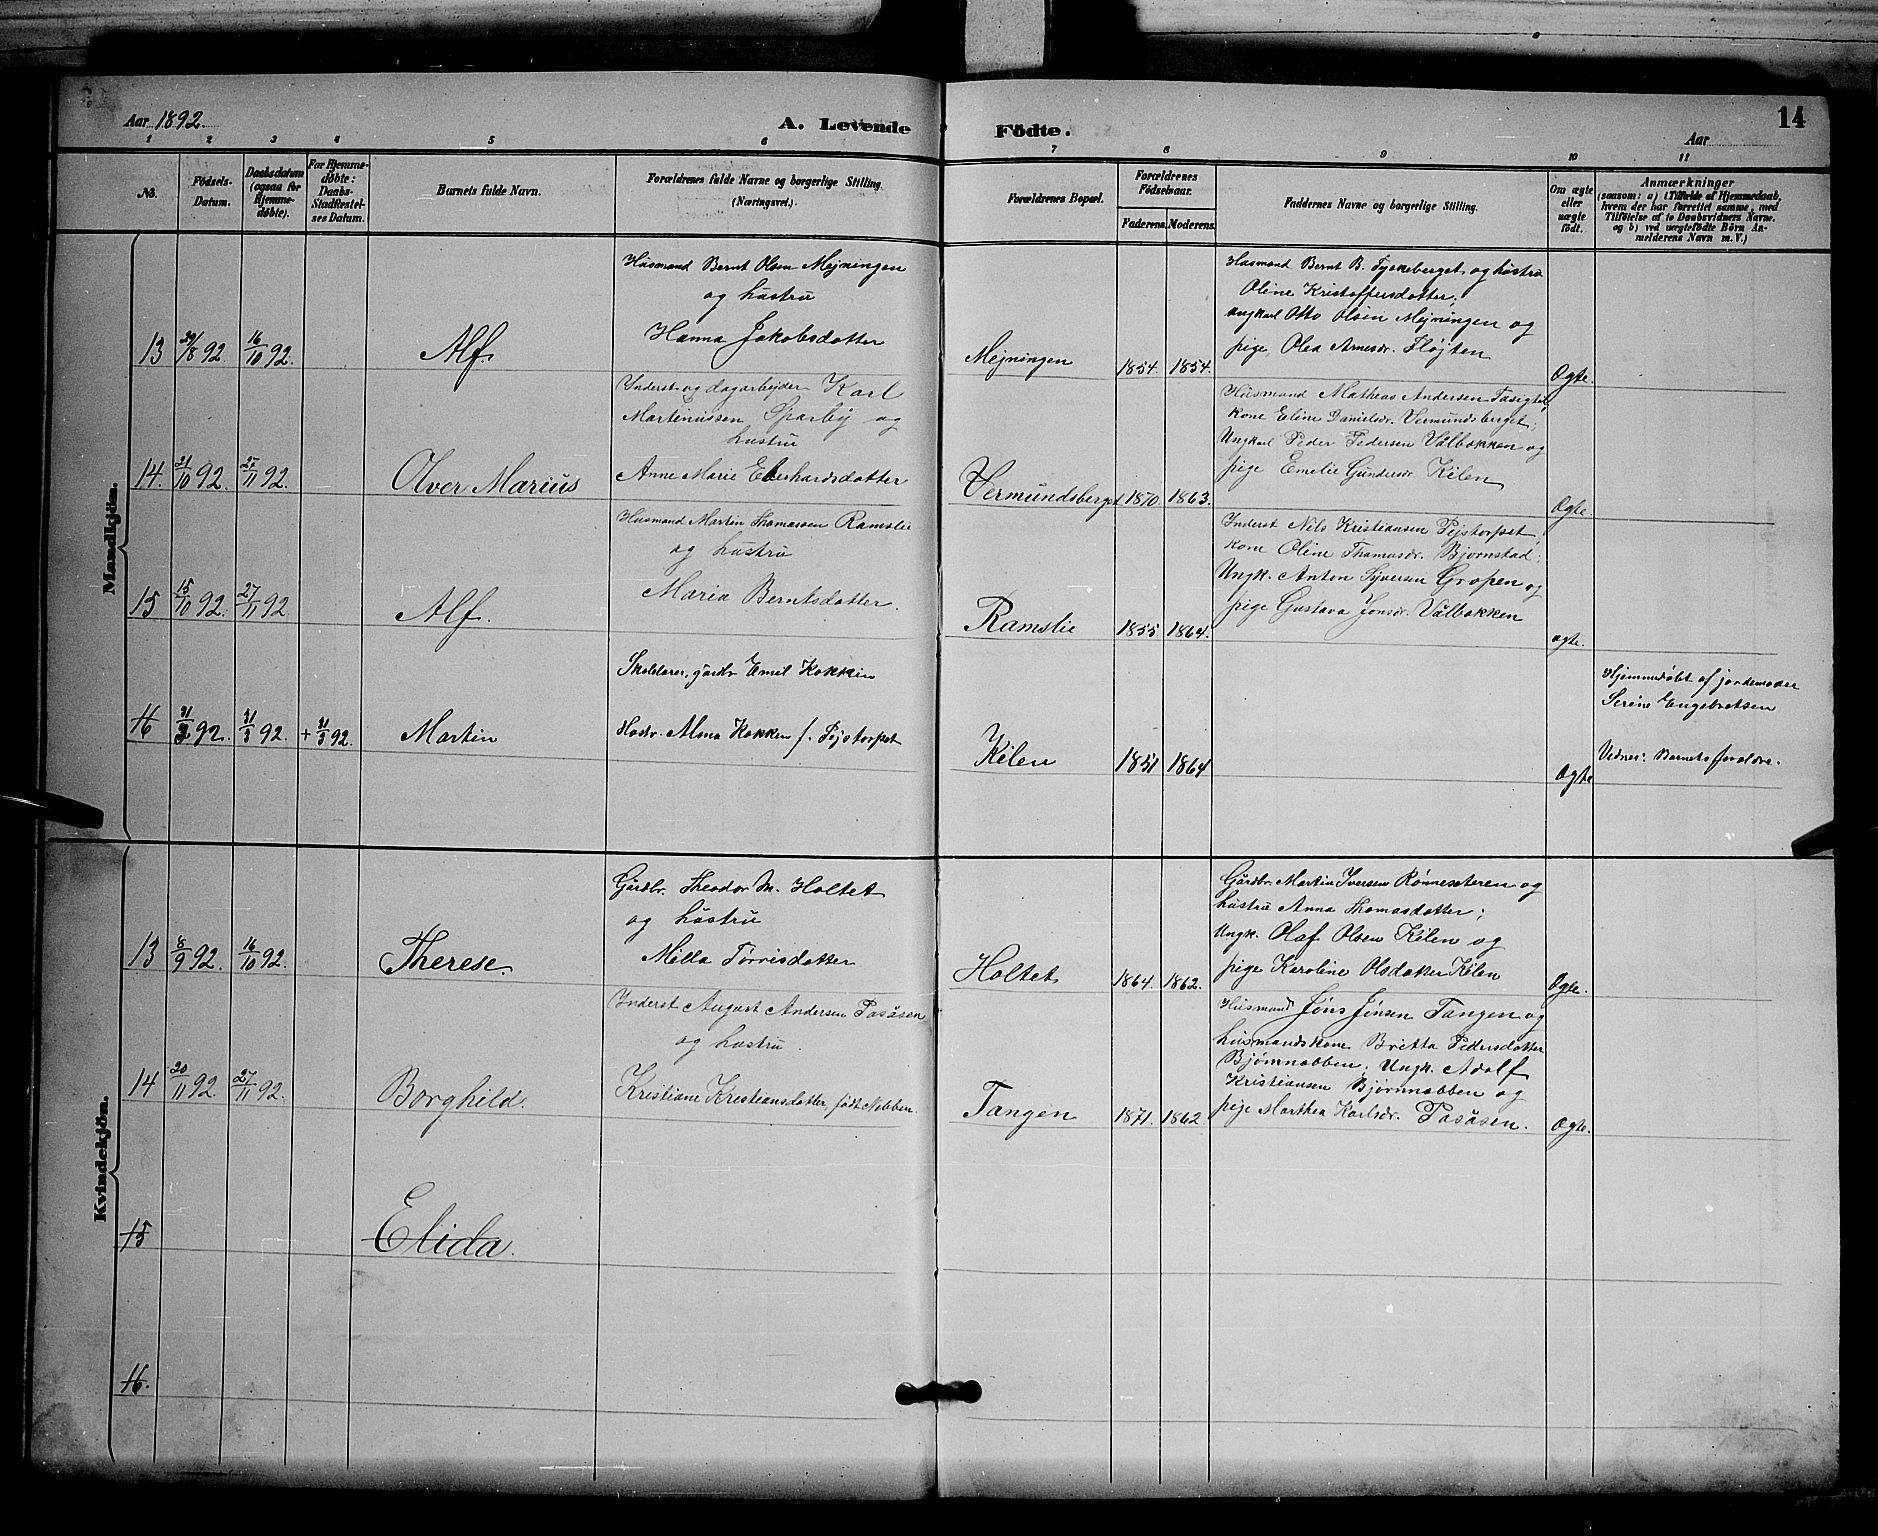 Aar 1892.
A. Levende Födte.
Aar
14
1 2 3 4 5 6 7 8 9 10 11
No.
Födsels-Datum.
Daabsdatum (ogsaa for Hjemme-döbte).
For Hjemme-döbte: Daabs-Stadfæstel-ses Datum.
Barnets fulde Navn.
Forældrenes fulde Navne og borgerlige Stilling.
(Næringsvei.)
Forældrenes Bopæl.
Forældrenes Födselsaar.
Faderens. Moderens.
Faddernes Navne og borgerlige Stilling.
Om ægte eller uægte födt.
Anmærkninger
(saasom: a) i Tilfælde af Hjemmedaab,
hvem der har forrettet samme, med
Tilföielse af to Daabsvidners Navne,
og b) ved uægtefödte Börn An-
melderens Navn m. V.)
Mandkjön.
Husmand Bernt Olsen Mejningen
og hustru
Hanna Jakobsdatter
13 29/8 92. 16/10 92. Alf.
Mejningen 1854. 1854.
Husmand Bernt B. Tyskeberget og hustru
Oline Kristoffersdatter;
ungkarl Otto Olsen Mejningen og
pige Olea Arnesdr. Fløjten
Ægte.
Inderst og dagarbejder Karl
Martinussen Sparby og
hustru
Anne Marie Eberhardsdatter
14. 21/10 92. 27/11 92. Olver Marius
Vermundsberget 1870. 1863.
Husmand Mathias Andersen
kone Eline Danielsdr. Vermundsberget;
Ungkarl Peder Pedersen Vålbakken og
pige Emelie Gundersdr. Kilen
Ægte.
Husmand Martin Thomassen Ramslie
og hustru
Maria Berntsdatter.
15 15/10 92. 27/11 92 Alf.
Ramslie 1855. 1864.
Inderst Nils Kristiansen Pejstorpet,
kone Oline Thomasdr. Bjørnstad;
Ungk. Anton Syversen Gropen og
pige Gustava Jonsdr. Vålbakken
Ægte.
Skolelærer, gårdbr. Emil Kokkin
Hustr. Alma Kokken f. Pejstorpet
16 31/3 92. 31/3 92. + 31/3 92. Martin
Kilen 1851 1864
Ægte
Hjemmedøbt af jordemoder
Serine Engebretsen
Vidner: Barnets forældre.
Kvindekjön.
Gårdbr. Theodor M. Holtet
og hustru
Milla Tørrisdatter
13 8/9 92. 16/10 92. Therese.
Holtet 1864. 1862.
Gårdbr. Martin Iversen Rønneseteren og
hustru Anna Thomasdatter;
Ungk. Olaf Olsen Kilen og
pige Karoline Olsdatter Kilen
Ægte.
Inderst August Andersen Pasåsen
og hustru.
Kristiane Kristiansdatter, født Nabben
14 20/11 92. 27/11 92. Borghild.
Tangen 1871. 1862.
Husmand Jöns Jönsen Tangen og
husmandskone Britta Pedersdatter
Bjørnnabben; Ungk. Adolf
Kristiansen Bjørnnabben og
pige Marthea Karlsdr. Pasåsen.
Ægte.
15 Elida.
16.